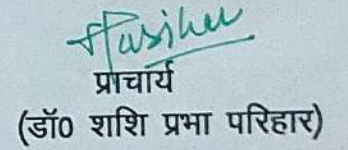 प्राचार्य
(डॉ0 शशि प्रभा परिहार)